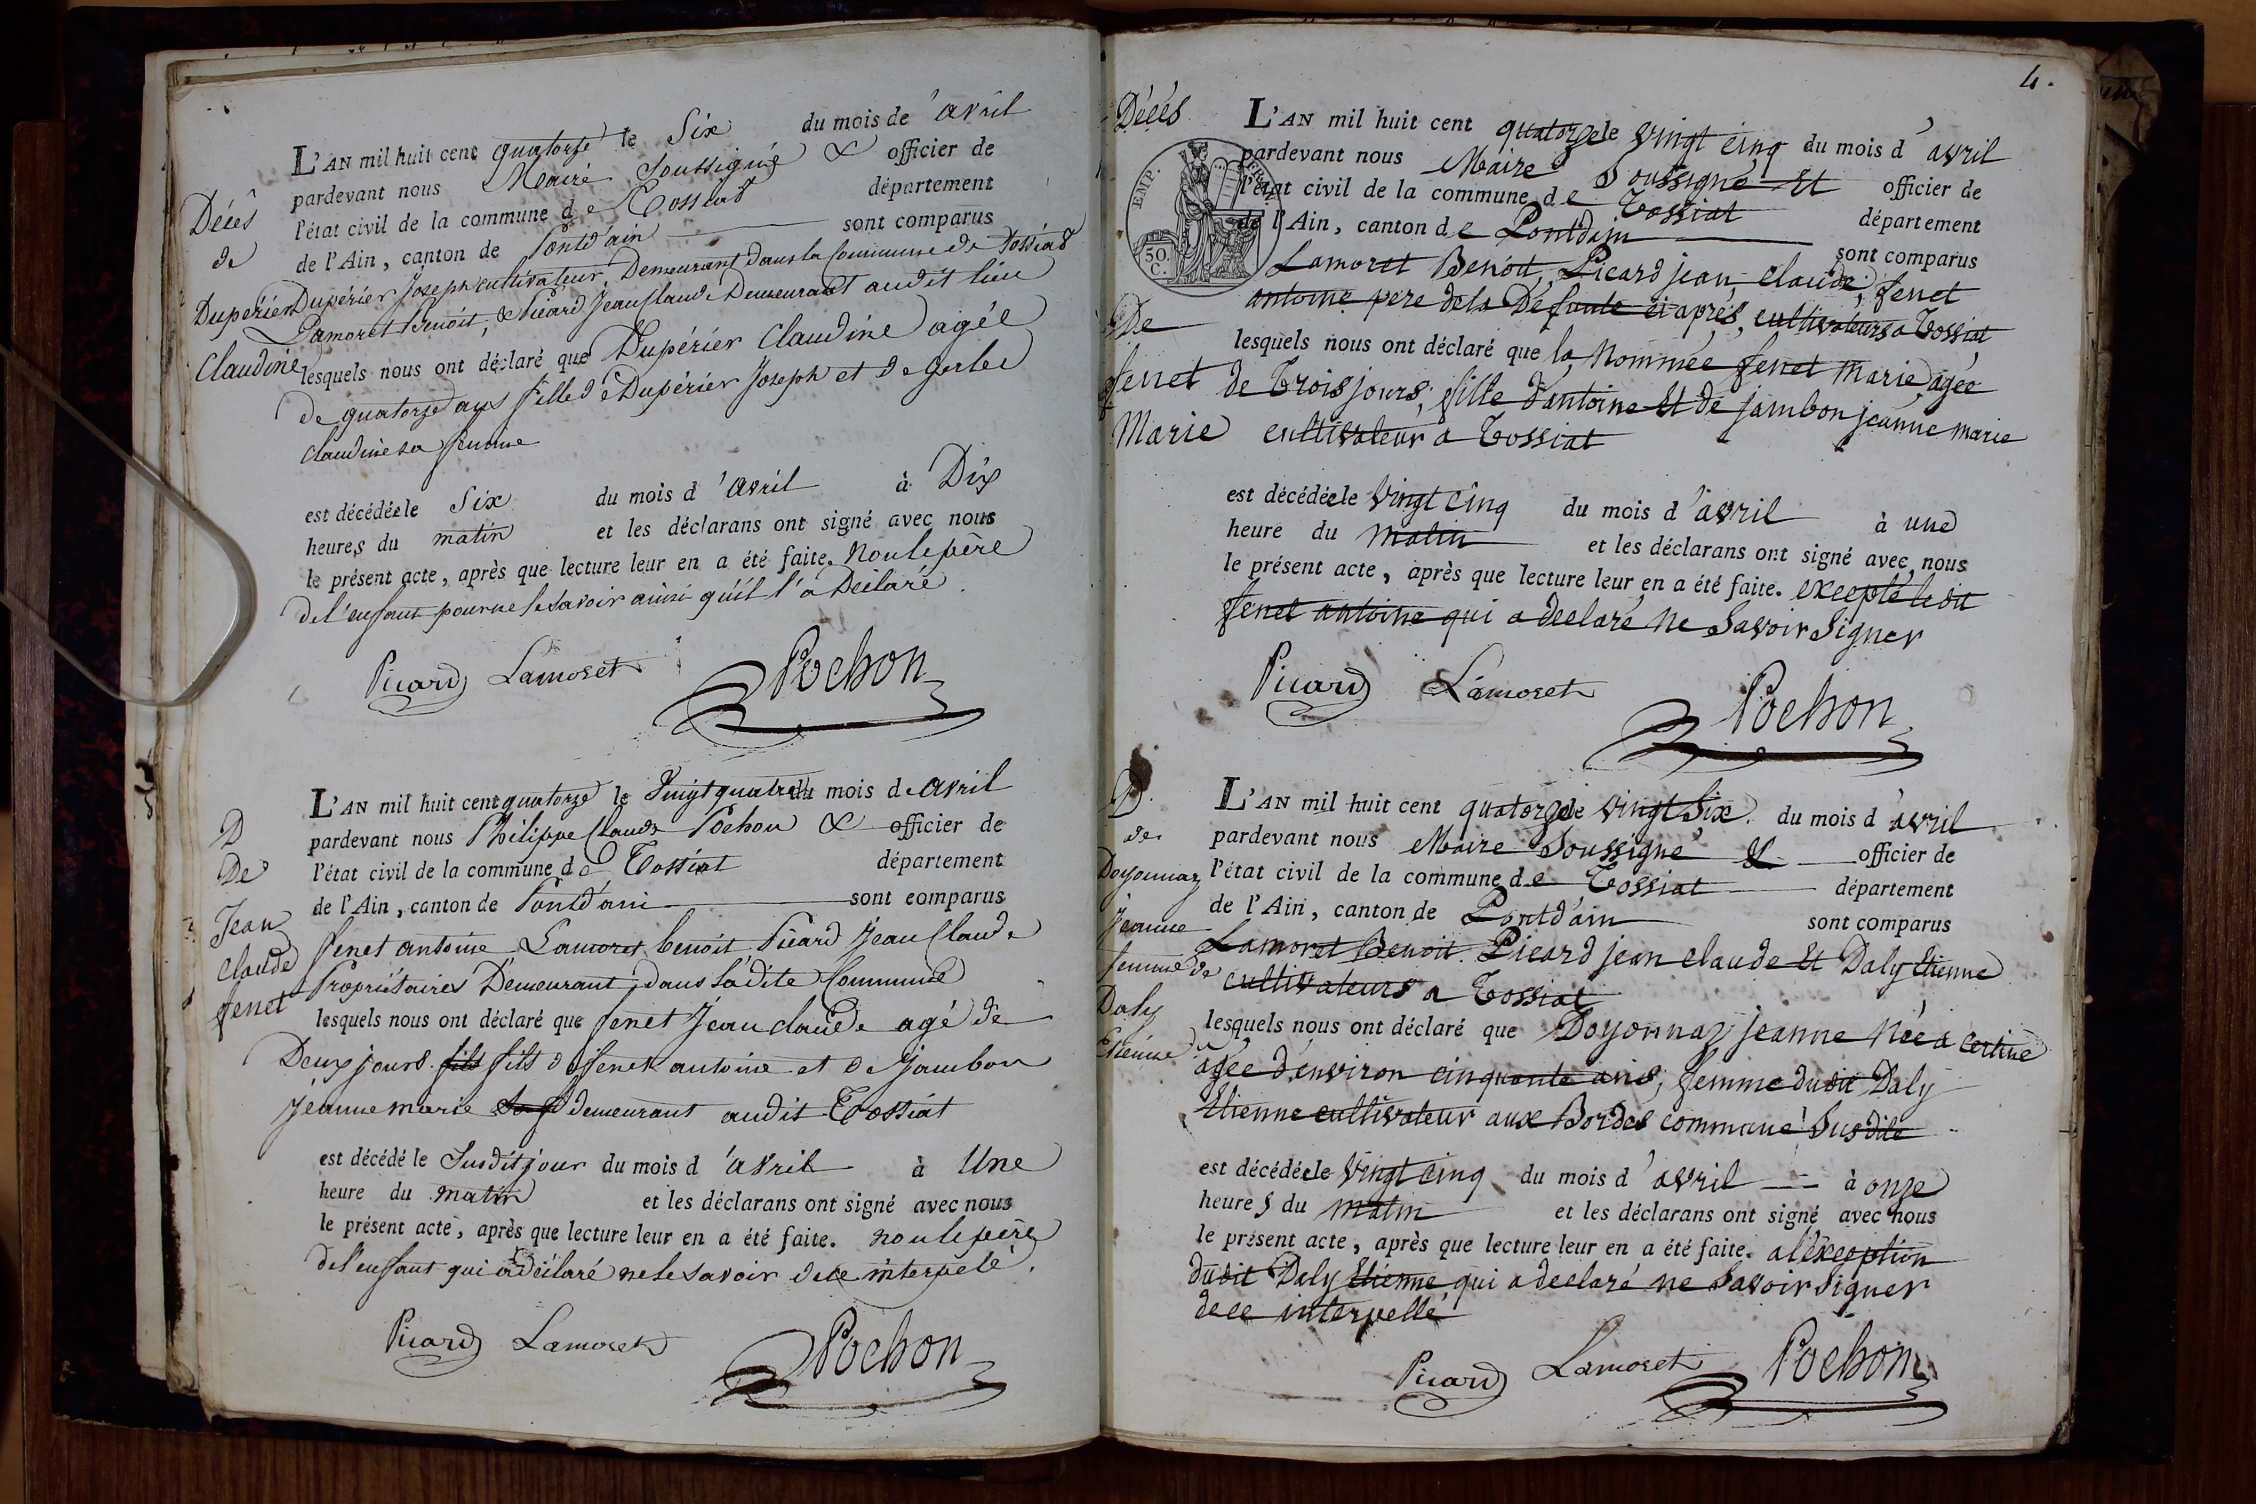 L'AN mil huit cent quatorze le Six du mois de avril
pardevant nous Maire Soussigné & officier de
l'état civil de la commune de Tossiat département
de l'Ain, canton de Pontd'ain sont comparus
Dupérier Joseph cultivateur, Demeurant dans la Commune de Tossiat
Lamoret Benoit, & Picard Jean Claude Demeurant audit lieu
lesquels nous ont déclaré que Dupérier Claudine agée
de quatorze ans fille de Dupérier Joseph et de Gerlée
Claudine sa femme
Décès
de
Dupérier
Claudine
est décédée le Six du mois d'avril à Dix
heures du matin et les déclarans ont signé avec nous
le présent acte, après que lecture leur en a été faite. Non le père
de l'enfant pour ne le savoir ainsi qu'il l'a Déclaré.
Picard Lamoret Pochon
L'AN mil huit cent quatorze le Vingt quatre du mois de avril
pardevant nous Philippe Claude Pochon & officier de
l'état civil de la commune de Tossiat département
de l'Ain, canton de Pontd'ain sont comparus
fenet antoine Lamoret benoit Picard Jean Claude
Propriétaires Demeurant dans ladite Commune
lesquels nous ont déclaré que fenet Jean claude agé de
Deux jours fils fils de fenet antoine et de Jambon
Jeanne marie demeurant audit Tossiat
D
De
Jean
Claude
fenet
est décédé le Susdit jour du mois d'avril à Une
heure du matin et les déclarans ont signé avec nous
le présent acte, après que lecture leur en a été faite. non le père
de l'enfant qui a déclaré ne le savoir de ce interpelé.
Picard Lamoret Pochon
4.
Décés
EMP.
50.
C.
L'AN mil huit cent quatorze le vingt cinq du mois d'avril
pardevant nous Maire Soussigné Et officier de
l'état civil de la commune de Tossiat département
de l'Ain, canton de Pontdain sont comparus
Lamoret Benoit, Picard jean claude, fenet
antoine pere de la Défunte ci après, cultivateurs a Tossiat
lesquels nous ont déclaré que la Nommée fenet marie, agée
de Trois jours, fille d'antoine Et de jambon jeanne marie
cultivateur a Tossiat
De
fenet
Marie
est décédée le vingt cinq du mois d'avril à une
heure du matin et les déclarans ont signé avec nous
le présent acte, après que lecture leur en a été faite. excepté ledit
fenet antoine qui a declaré ne Savoir Signer
Picard Lamoret Pochon
L'AN mil huit cent quatorze le vingt Six du mois d'avril
pardevant nous Maire Soussigné & officier de
l'état civil de la commune de Tossiat département
de l'Ain, canton de Pontd'ain sont comparus
Lamoret Benoit. Picard jean claude Et Daly Etienne
cultivateurs a Tossiat
lesquels nous ont déclaré que Doyonnaz jeanne Née a certine
agée d'environ cinquante ans, femme dudit Daly
Etienne cultivateur aux Bordes commune Susdite
D.
de
Doyonnaz
Jeanne
femme de
Daly
Etienne
est décédée le vingt cinq du mois d'avril à onze
heures du matin et les déclarans ont signé avec nous
le présent acte, après que lecture leur en a été faite. a l'exception
dudit Daly Etienne qui a declaré ne Savoir Signer
de ce interpellé
Picard Lamoret Pochon